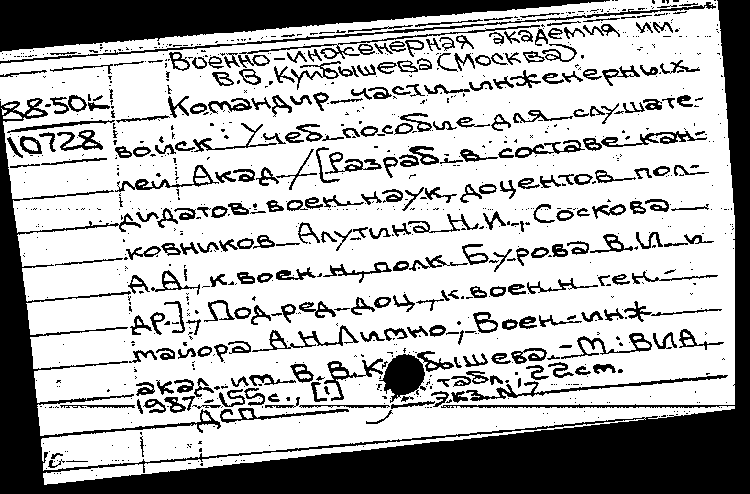 Военно-инженерная академия им.
В.В. Куйбышева (Москва).
88-50к
Командир части инженерных
10728
войск: Учеб. пособие для слушате-
лей Акад / [Разраб. в составе: кан-
дидатов воен. наук, доцентов пол-
ковников Алутина Н.И., Соскова
А.А., к.воен.н., полк. Бурова В.И. и
др.]; Под ред. доц., к.воен.н ген.-
майора А.Н. Литно; Воен.-инж.
акад. им. В.В. К бышева. - М.: ВИА,
1987.-155с., [1] табл.; 22см.
ДСП Экз. N 7